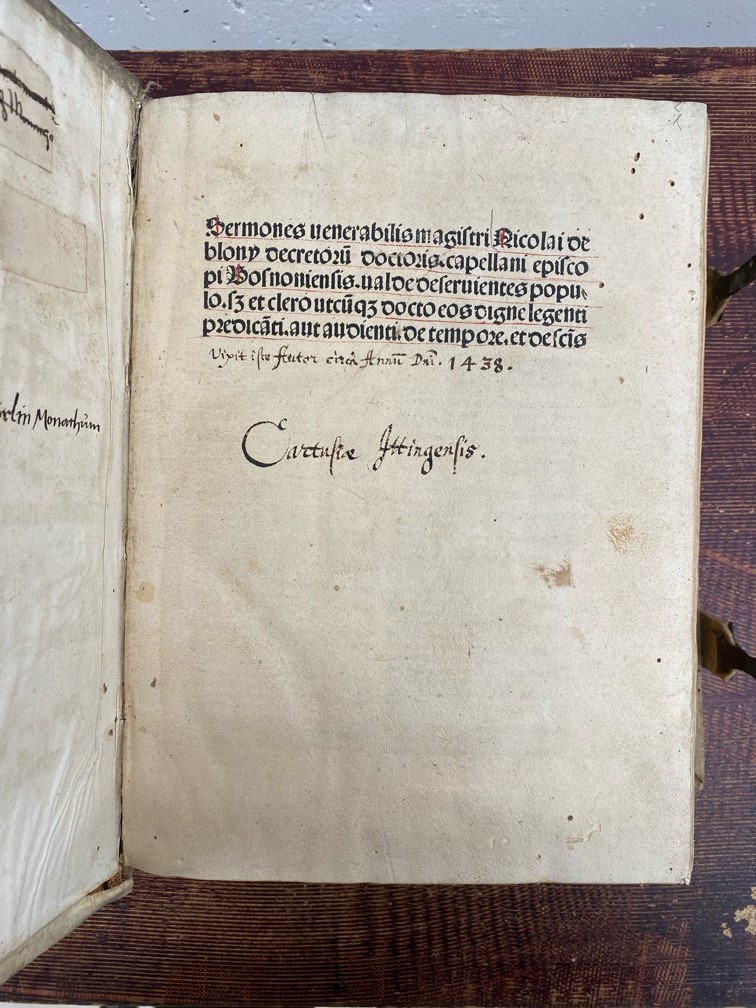 Monachum
Sermones uenerabilis magistri Nicolai de
blony decretorū doctoris. capellani episco
pi Posnoniensis. ualde deseruientes popu⸗
lo. sꝫ et clero utcūqꝫ docto eos digne legenti
predicāti. aut audienti. de tempore. et de scīs
Vixit iste Autor circa Annū Dni. 1438.
Cartusiæ Ittingensis.